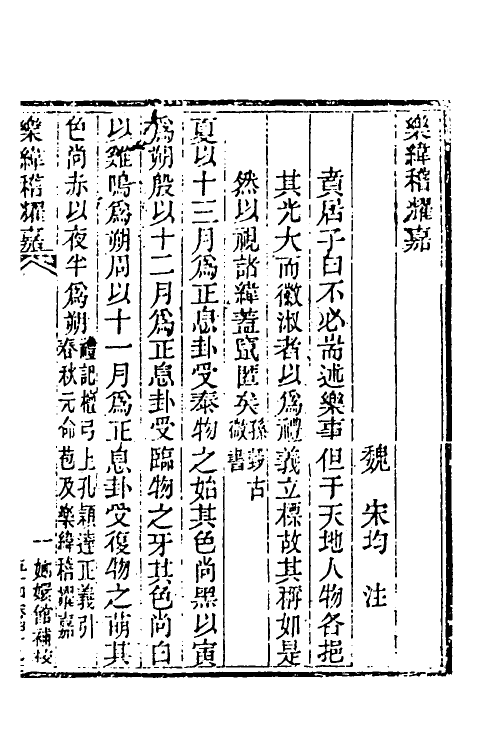 樂緯稽耀嘉
魏　宋均　注
賁居子曰不必耑述樂事但于天地人物各挹
其光大而徽淑者以爲禮義立標故其稱如是
然以視諸緯葢寔匱矣孫瑴古微書
夏以十三月爲正息卦受泰物之始其色尚黑以寅
爲朔殷以十二月爲正息卦受臨物之牙其色尚白
以雞鳴爲朔周以十一月爲正息卦受復物之萌其
色尚赤以夜半爲朔禮記檀弓上孔穎達正義引春秋元命苞及樂緯稽耀嘉
樂緯稽耀嘉
一　嫏嬛館補校